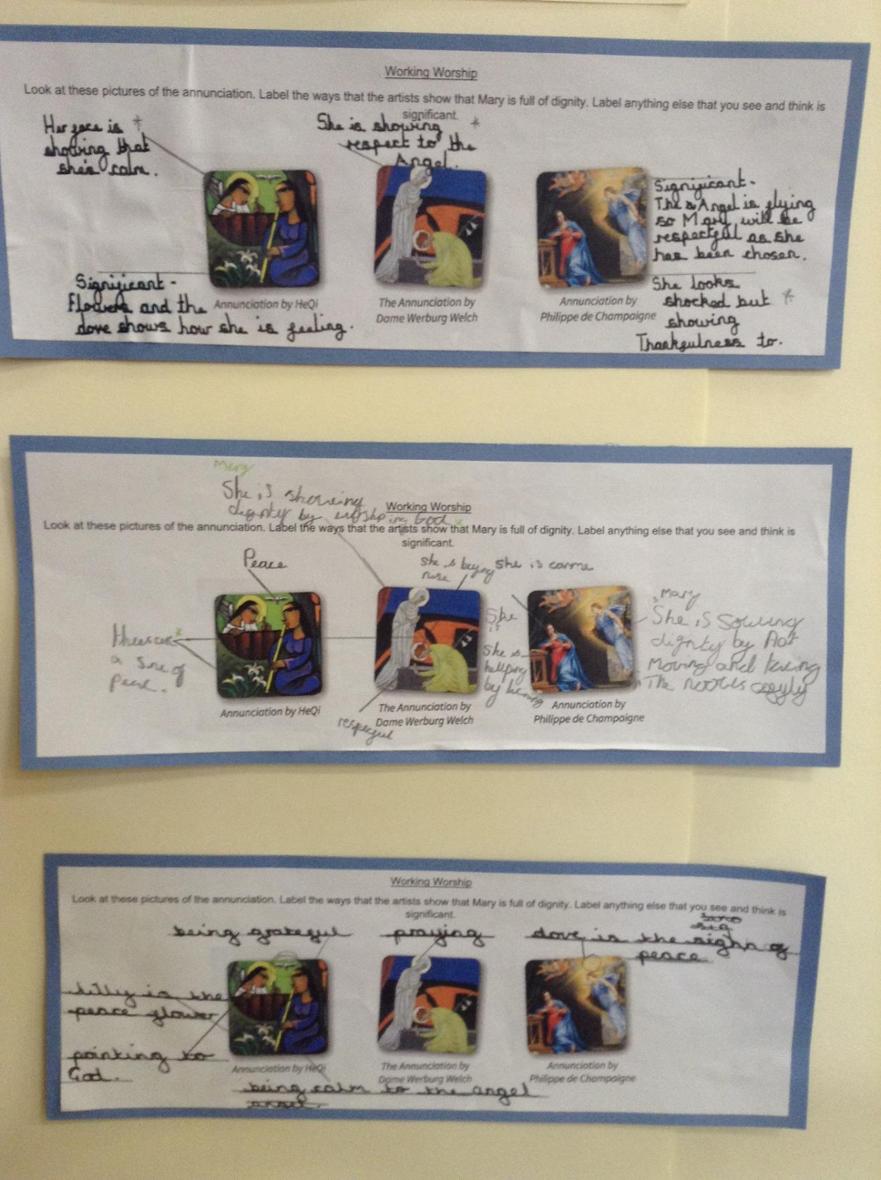 Working Worship
Look at these pictures of the annunciation. Label the ways that the artists show that Mary is full of dignity. Label anything else that you see and think is
significant.
Her face is
showing that
she's calm.
She is showing
respect to the
Angel.
Significant -
The Angel is flying
so Mary will be
respectful as she
has been chosen.
Significant -
Flowers and the
dove shows how she is feeling.
She looks
shocked but
showing
Thankfulness to.
Annunciation by HeQi
The Annunciation by
Dame Werburg Welch
Annunciation by
Philippe de Champaigne
Mary
She is showing
dignty by worshping God
Working Worship
Look at these pictures of the annunciation. Label the ways that the artists show that Mary is full of dignity. Label anything else that you see and think is
significant.
Peace
she is
She is
a
of
She
is
she is
helping
by
Mary
She is
dignty by Not
Moving and
The
respecful
Annunciation by HeQi
The Annunciation by
Dame Werburg Welch
Annunciation by
Philippe de Champaigne
Working Worship
Look at these pictures of the annunciation. Label the ways that the artists show that Mary is full of dignity. Label anything else that you see and think is
significant.
being grateful
praying
dove is the sighn of
peace
lilly is the
peace flower
pointing to
God.
being calm to the angel
Annunciation by HeQi
The Annunciation by
Dame Werburg Welch
Annunciation by
Philippe de Champaigne